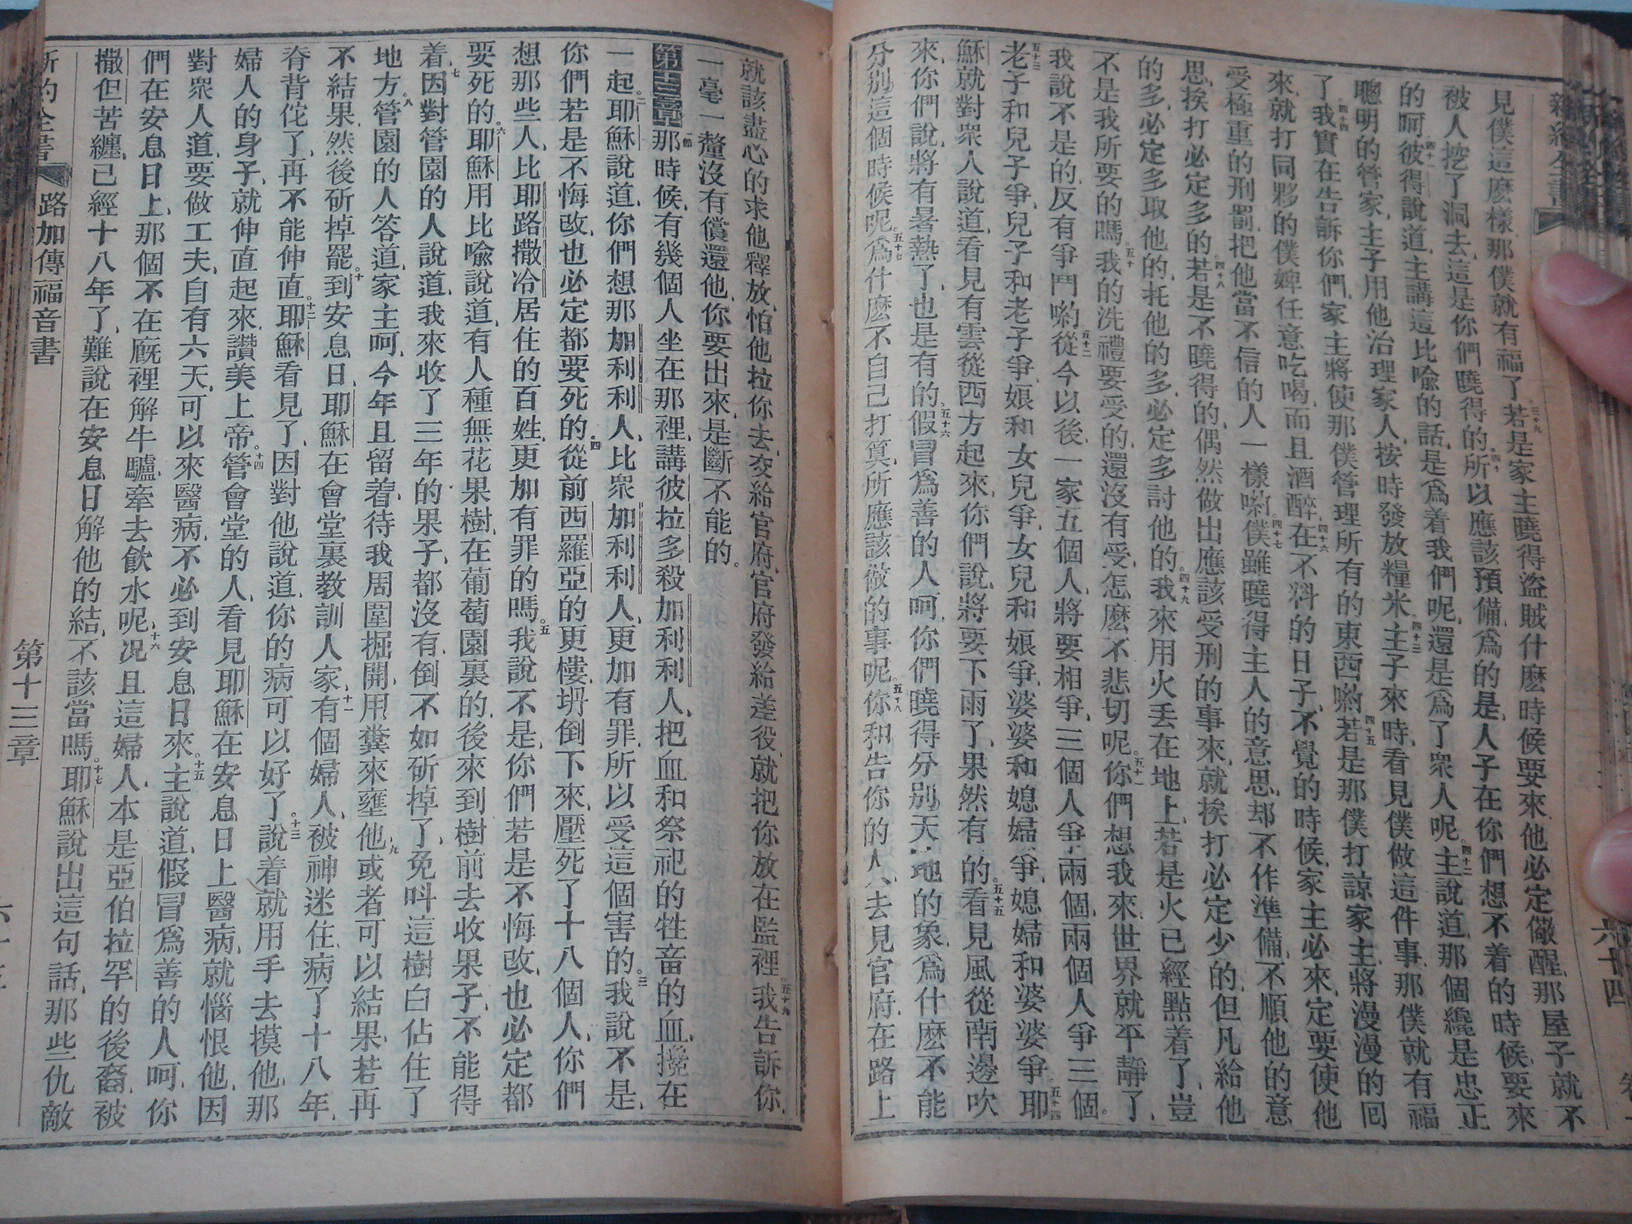 見僕這麽樣那僕就有福了三十九若是家主曉得盜賊什麽時候要來他必定儆醒那屋子就不
被人挖了洞去這是你們曉得的四十所以應該預備爲的是人子在你們想不着的時候要來
的呵四十一彼得說道主講這比喻的話是爲着我們呢還是爲了衆人呢四十二主說道那個纔是忠正
聰明的管家主子用他治理家人按時發放糧米四十三主子來時看見僕做這件事那僕就有福
了四十四我實在告訴你們家主將使那僕管理所有的東西喲四十五若是那僕打諒家主將漫漫的囘
來就打同夥的僕婢任意吃喝而且酒醉四十六在不料的日子不覺的時候家主必來定要使他
受極重的刑罰把他當不信的人一樣喲四十七僕雖曉得主人的意思却不作準備不順他的意
思挨打必定多的四十八若是不曉得的偶然做出應該受刑的事來就挨打必定少的但凡給他
的多必定多取他的托他的多必定多討他的四十九我來用火丢在地上若是火已經點着了豈
不是我所要的嗎五十我的洗禮要受的還沒有受怎麽不悲切呢五十一你們想我來世界就平靜了
我說不是的反有爭鬥喲五十二從今以後一家五個人將要相爭三個人爭兩個兩個人爭三個
五十三老子和兒子爭兒子和老子爭娘和女兒爭女兒和娘爭婆婆和媳婦爭媳婦和婆婆爭五十四耶
穌就對衆人說道看見有雲從西方起來你們說將要下雨了果然有的五十五看見風從南邊吹
來你們說將有暑熱了也是有的五十六假冒爲善的人呵你們曉得分别天地的象爲什麽不能
分别這個時候呢五十七爲什麽不自己打算所應該做的事呢五十八你和告你的人去見官府在路上
就該盡心的求他釋放怕他拉你去交給官府官府發給差役就把你放在監裡五十九我告訴你
一毫一釐沒有償還他你要出來是斷不能的
第十三章一節那時候有幾個人坐在那裡講彼拉多殺加利利人把血和祭祀的牲畜的血攙在
一起二耶穌說道你們想那加利利人比衆加利利人更加有罪所以受這個害的三我說不是
你們若是不悔改也必定都要死的四從前西羅亞的更樓坍倒下來壓死了十八個人你們
想那些人比耶路撒冷居住的百姓更加有罪的嗎五我說不是你們若是不悔改也必定都
要死的六耶穌用比喻說道有人種無花果樹在葡萄園裏的後來到樹前去收果子不能得
着七因對管園的人說道我來收了三年的果子都沒有倒不如斫掉了免呌這樹白佔住了
地方八管園的人答道家主呵今年且留着待我周圍掘開用糞來壅他九或者可以結果若再
不結果然後斫掉罷十到安息日耶穌在會堂裏教訓人家十一有個婦人被神迷住病了十八年
脊背佗了再不能伸直十二耶穌看見了因對他說道你的病可以好了十三說着就用手去摸他那
婦人的身子就伸直起來讚美上帝十四管會堂的人看見耶穌在安息日上醫病就惱恨他因
對衆人道要做工夫自有六天可以來醫病不必到安息日來十五主說道假冒爲善的人呵你
們在安息日上那個不在厩裡解牛驢牽去飲水呢十六况且這婦人本是亞伯拉罕的後裔被
撒但苦纏已經十八年了難說在安息日解他的結不該當嗎十七耶穌說出這句話那些仇敵
新約全書 路加傳福音書 第十三章